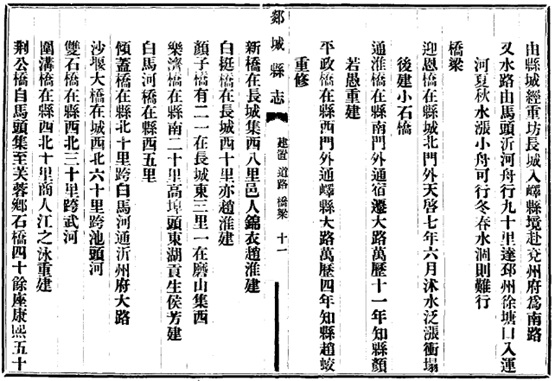 由縣城經重坊長城入嶧縣境赴兗州府爲南路
又水路由馬頭沂河舟行九十里達邳州徐塘口入運
河夏秋水漲小舟可行冬春水涸則難行
橋梁
迎恩橋在縣城北門外天啓七年六月沭水泛漲衝塌
後建小石橋
通淮橋在縣南門外通宿遷大路萬歷十一年知縣顏
若愚重建
平政橋在縣西門外通嶧縣大路萬歷四年知縣趙蛟
重修
郯城縣志
建置 道路 橋梁 十一
新橋在長城集西八里邑人錦衣趙淮建
白挺橋在長城西十里亦趙淮建
顏子橋有二一在長城東三里一在磨山集西
樂濟橋在縣南二十里高埠頭東湖貢生侯芳建
白馬河橋在縣西五里
傾蓋橋在縣北十里跨白馬河通沂州府大路
沙堰大橋在城西北六十里跨池頭河
雙石橋在縣西北三十里跨武河
圍溝橋在縣西北十里商人江之泳重建
荆公橋自馬頭集至芙蓉鄉石橋四十餘座康熙五十